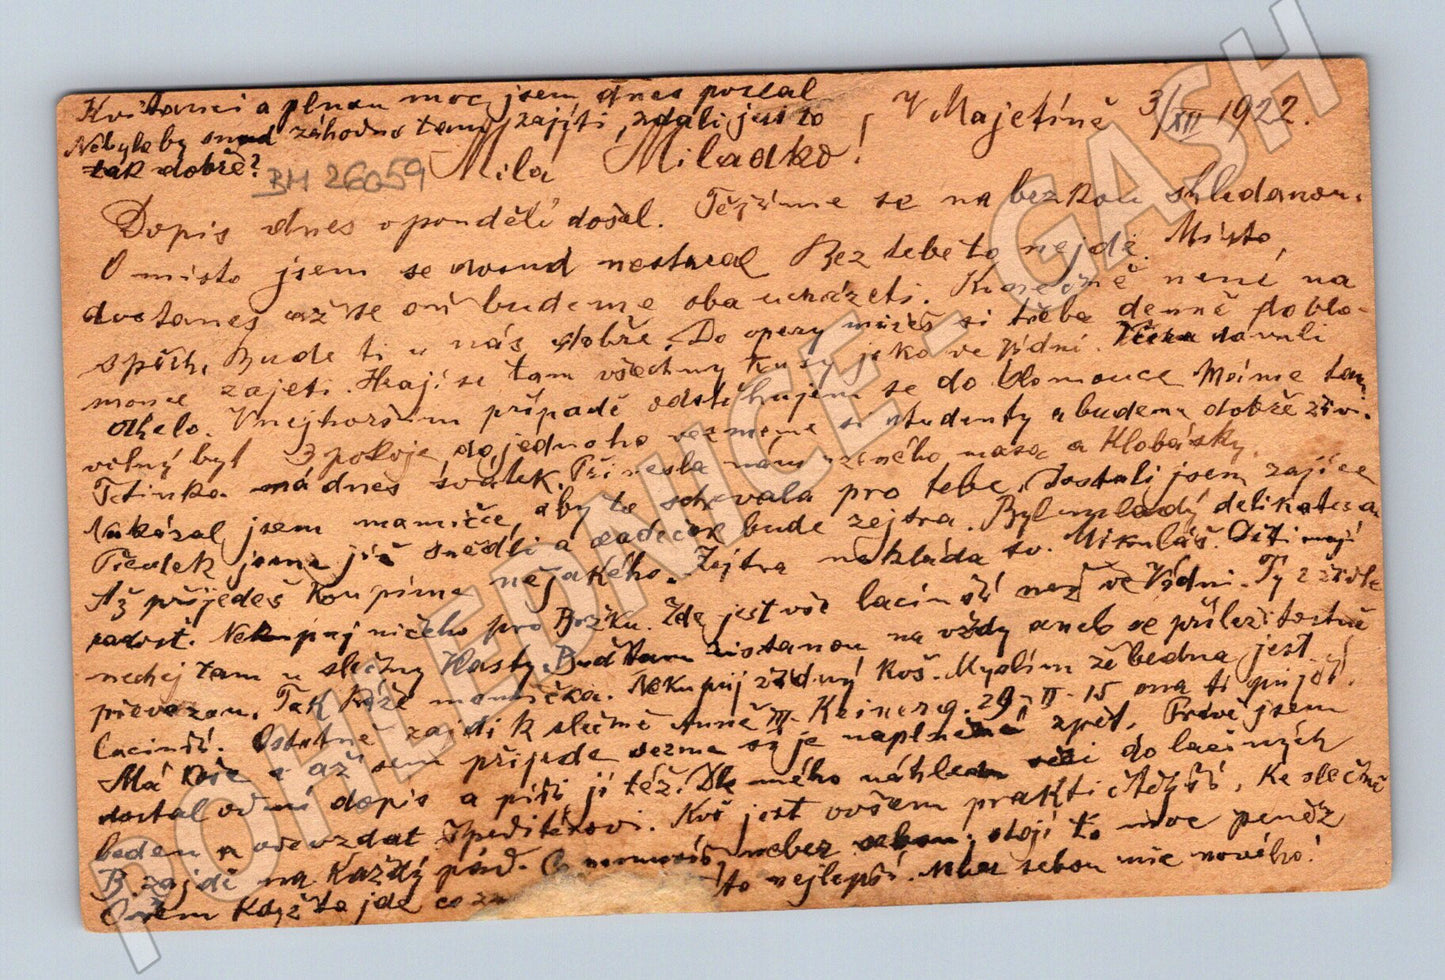 Kvitanci a plnou moc jsem dnes poslal
Nebyla by snad záhodno tam zajíti, zdali jest to
tak dobře?
BH 26059
V Majetíně 3/XII 1922.
Milá Miladko!
Dopis dnes v pondělí došel. Těšíme se na brzkou shledanou.
O místo jsem se dosud nestaral Bez tebe to nejde. Místo,
dostaneš až se oň budeme oba ucházeti. Konečně není na
spěch, Bude ti u nás dobře. Do opery můžeš si třeba denně do Olo-
mouce zajeti. Hrají se tam všechny kusy jako ve Vídni. Včera dávali
Othelo. V nejhorším případě odstěhujem se do Olomouce Máme tam
vilný byt 3 pokoje, do jednoho vezmeme si studenty a budem dobře živi.
Tetinka má dnes svátek. Přinesla nám uzeného masa a klobásky.
Nakázal jsem mamičce, aby to schovala pro tebe. Dostali jsem zajíce
Předek jsme již snědli a zadeček bude zejtra. Byl mladý delikatesa
Až přijedeš koupíme nějakého. Zejtra nakláda sv. Mikuláš. Děti mají
radost. Nekupuj ničeho pro Božku. Zde jest vše lacinější než ve Vídni. Ty
nechej tam u slečny Vlasty. Buď tam zůstanou na vždy aneb se příležitostně
převezou. Tak káže mamička. Nekupuj žádný koš. Myslím že bedna jest
lacinější. Ostatně zajdi k slečně Anně III. 29-II-15 ona ti půjčí.
Má koše a až sem přijede vezme si je naplněné zpět. Právě jsem
dostal od ní dopis a píši jí též. Dle mého náhledu dolaciných
beden a odevzdat Špeditérovi. Koš jest ovšem praktičtější, Ke slečně
B. zajdi na každý pád. nebez sebou, stojí to moc peněz
Ovšem když to jde to nejlepší. Neber sebou nic nového!
POHLEDNICE - GASH